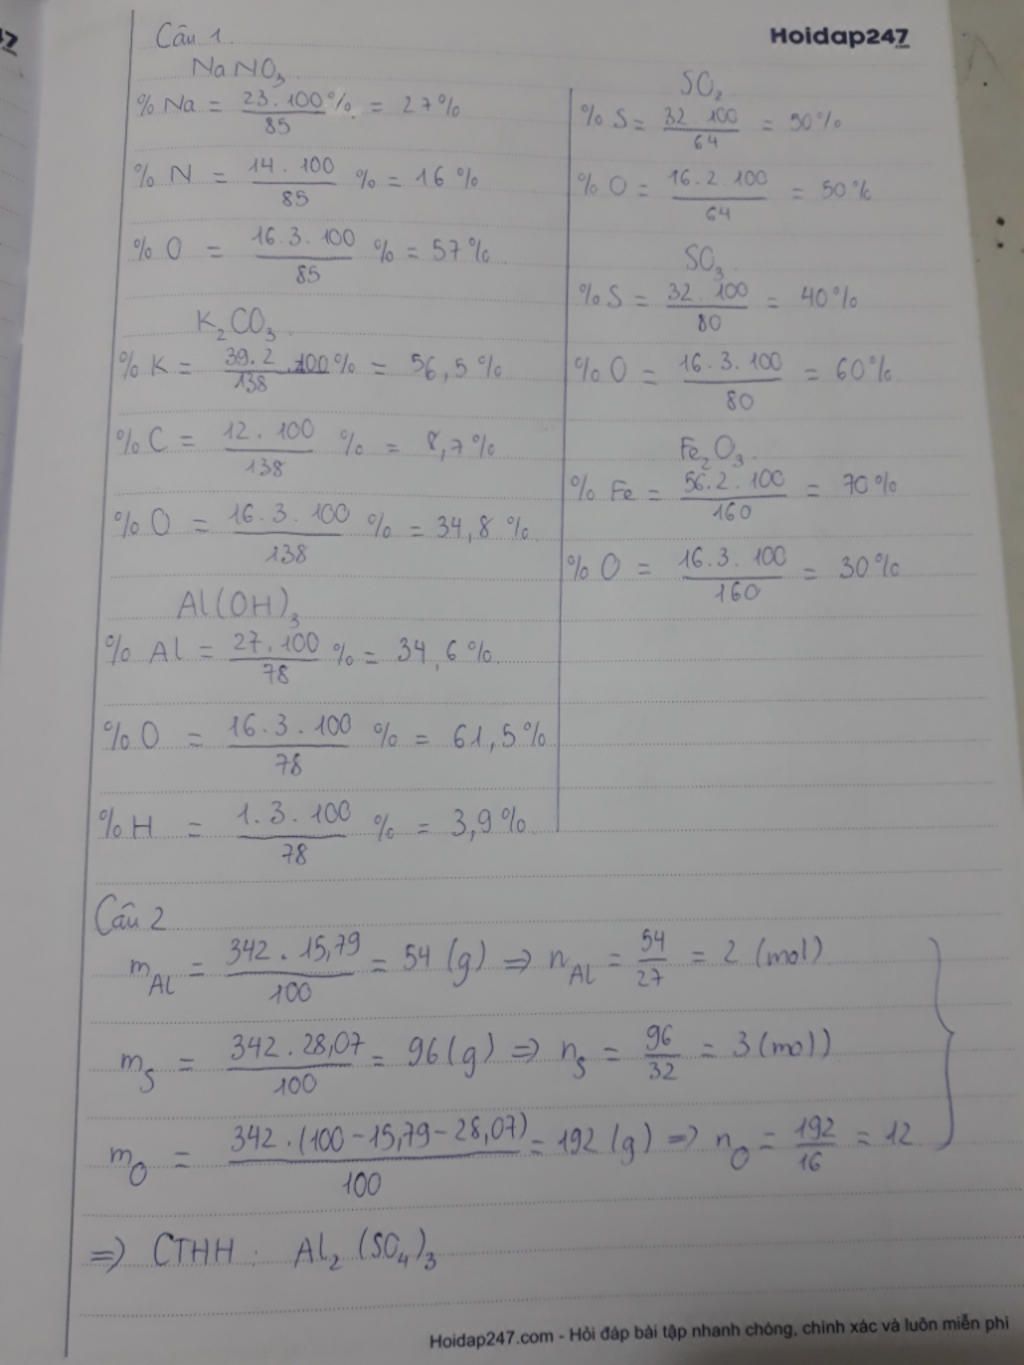 Hoidap247
Câu 1.
NaNO3
%Na = 23.100/85 % = 27%
%N = 14.100/85 % = 16%
%O = 16.3.100/85 % = 57%
K2CO3
%K = 39.2.100/138 % = 56,5%
%C = 12.100/138 % = 8,7%
%O = 16.3.100/138 % = 34,8%
Al(OH)3
%Al = 27.100/78 % = 34,6%
%O = 16.3.100/78 % = 61,5%
%H = 1.3.100/78 % = 3,9%
SO2
%S = 32.100/64 = 50%
%O = 16.2.100/64 = 50%
SO3
%S = 32.100/80 = 40%
%O = 16.3.100/80 = 60%
Fe2O3
%Fe = 56.2.100/160 = 70%
%O = 16.3.100/160 = 30%
Câu 2
mAl = 342.15,79/100 = 54 (g) => nAl = 54/27 = 2 (mol)
mS = 342.28,07/100 = 96 (g) => nS = 96/32 = 3 (mol)
mO = 342.(100-15,79-28,07)/100 = 192 (g) => nO = 192/16 = 12
=> CTHH: Al2(SO4)3
Hoidap247.com - Hỏi đáp bài tập nhanh chóng, chính xác và luôn miễn phí